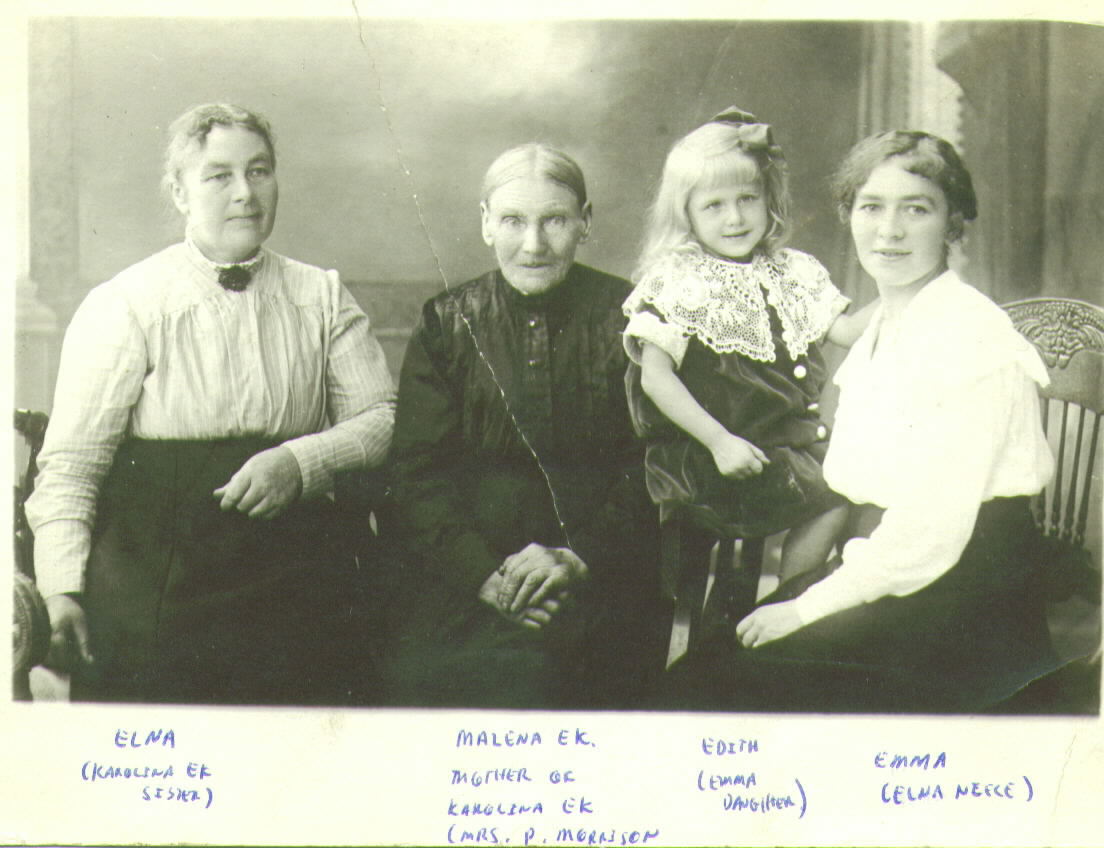 ELNA
(KAROLINA EK
SISTER)
MALENA EK.
MOTHER OF
KAROLINA EK
(MRS. P. MORRISON
EDITH
(EMMA
DAUGHTER)
EMMA
(ELNA NEECE)